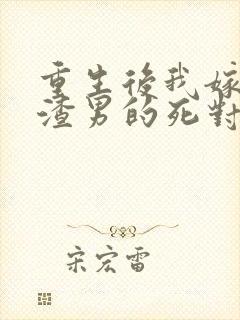 重生後我嫁
渣男的死對
宋宏雷